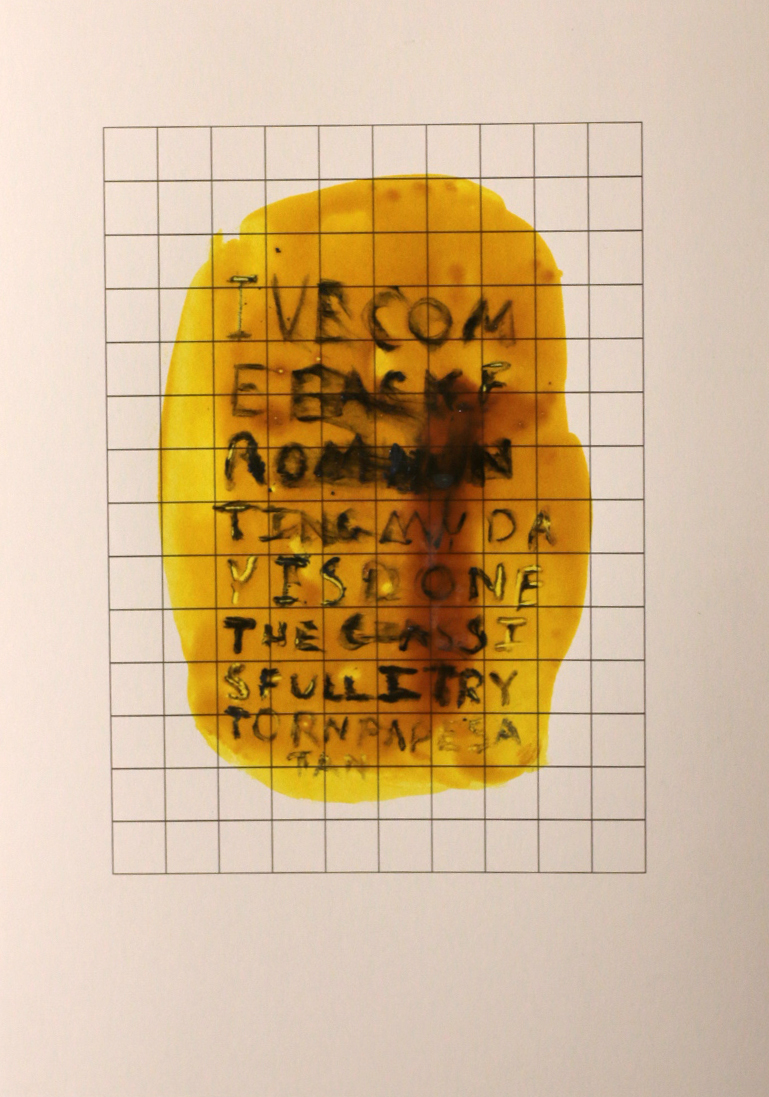 IVECOM
EBACKF
ROMHUN
TINGMYDA
YISDONE
THEGLASSI
SFULLITRY
TORNPAPESA
TAN